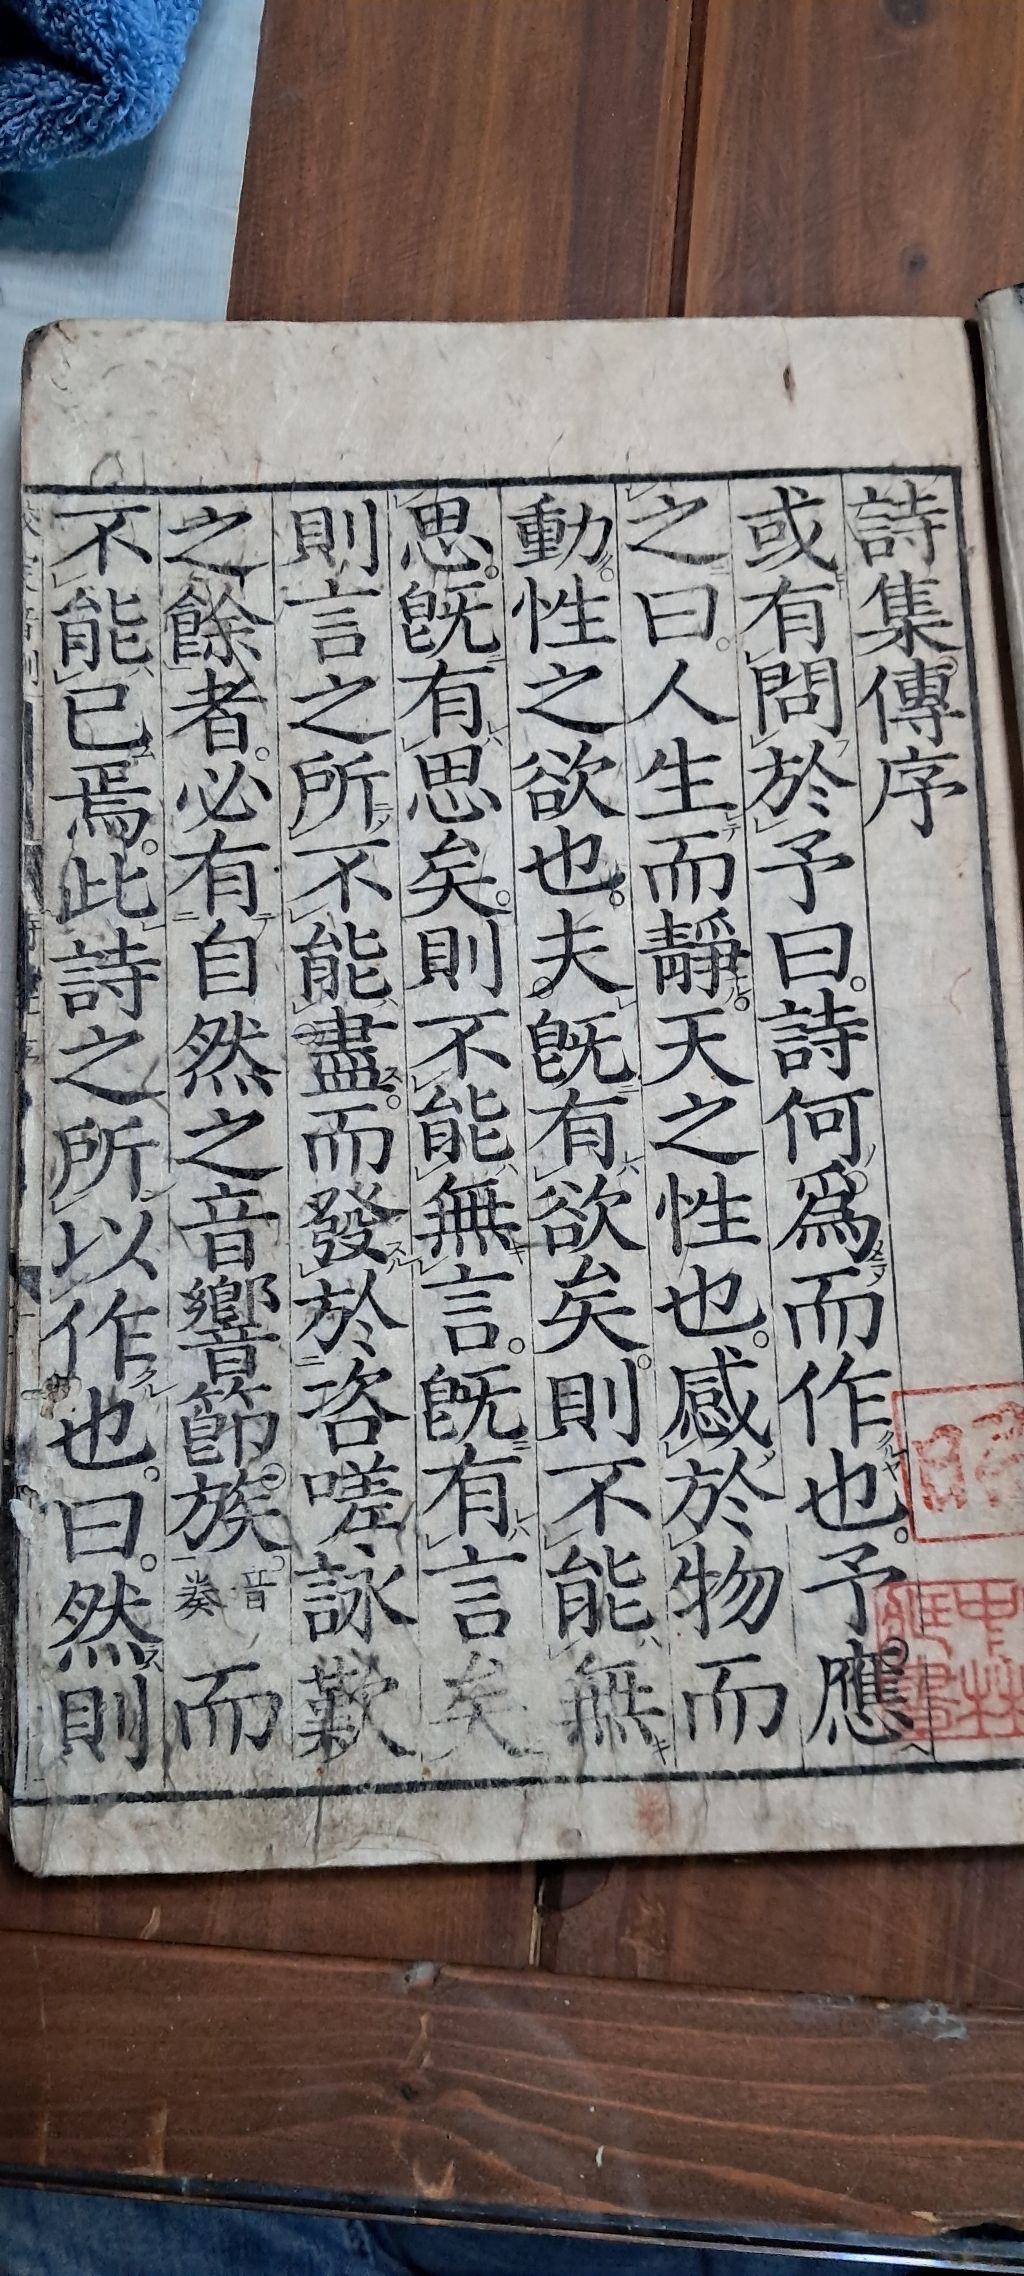 詩集傳序
或有問於予曰。詩何爲而作也。予應
之曰。人生而靜。天之性也。感於物而
動。性之欲也。夫既有欲矣。則不能無
思。既有思矣。則不能無言。既有言矣
則言之所不能盡。而發於咨嗟詠歎
之餘者。必有自然之音響節族。音奏而
不能已焉。此詩之所以作也。曰。然則